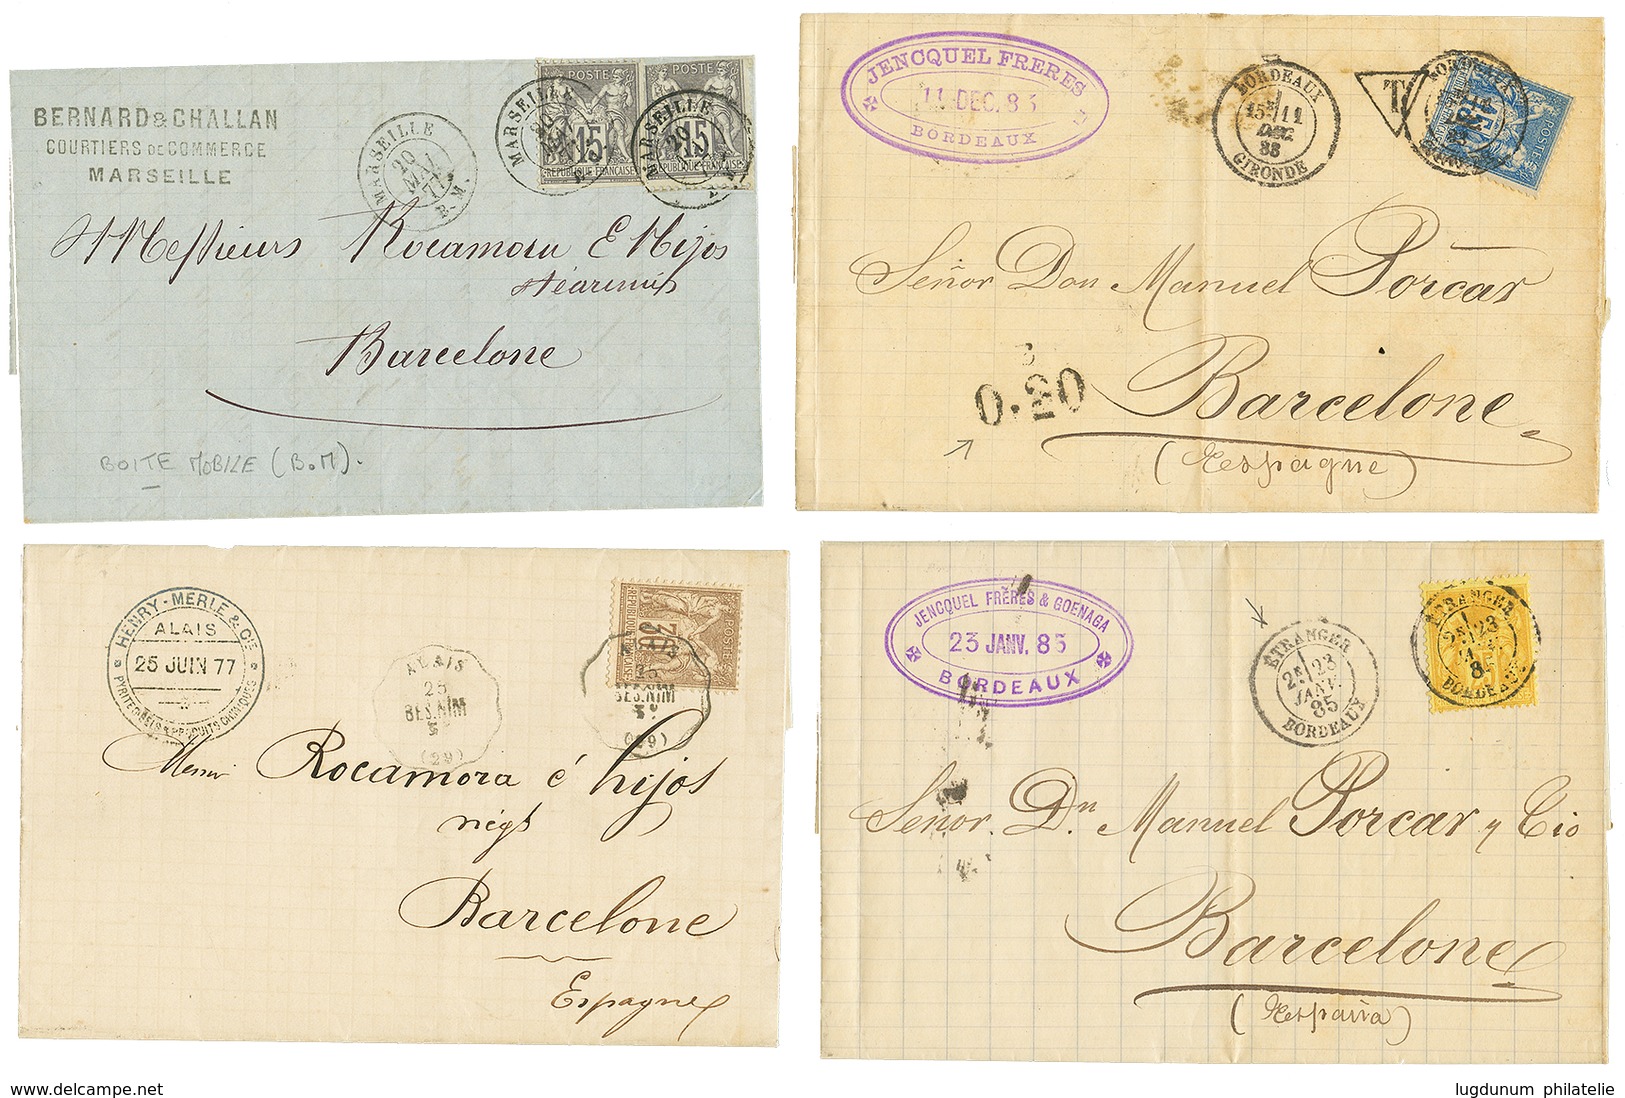 BERNARD & CHALLAN
COURTIERS DE COMMERCE
MARSEILLE
MARSEILLE
20
MAI
77
B.M.
MARSEILLE
POSTES
15
REPUBLIQUE FRANÇAISE
MARSEILLE
20
POSTES
15
REPUBLIQUE FRANÇAISE
Messieurs Rocamora E Hijos
Barcelone
BOITE MOBILE (B.M).
JENCQUEL FRERES
11 DEC. 83
BORDEAUX
BORDEAUX
11
DEC
83
GIRONDE
T
BORDEAUX
15
POSTES
Señor Don Manuel Porcar
0.20
Barcelone
(Espagne)
HENRY-MERLE & Cie
ALAIS
25 JUIN 77
ALAIS
25
BES.NIM
(29)
ALAIS
25
BES.NIM
(29)
30
POSTES
REPUBLIQUE FRANCAISE
Rocamora é hijos
negts
Barcelone
Espagne
JENCQUEL FRÈRES & GOENAGA
23 JANV. 85
BORDEAUX
ETRANGER
2E/23
JANV.
85
BORDEAUX
ETRANGER
2E/23
BORDEAUX
25
Señor. Dn Manuel Porcar y Cio
Barcelone
(España)
www.delcampe.net
lugdunum philatelie